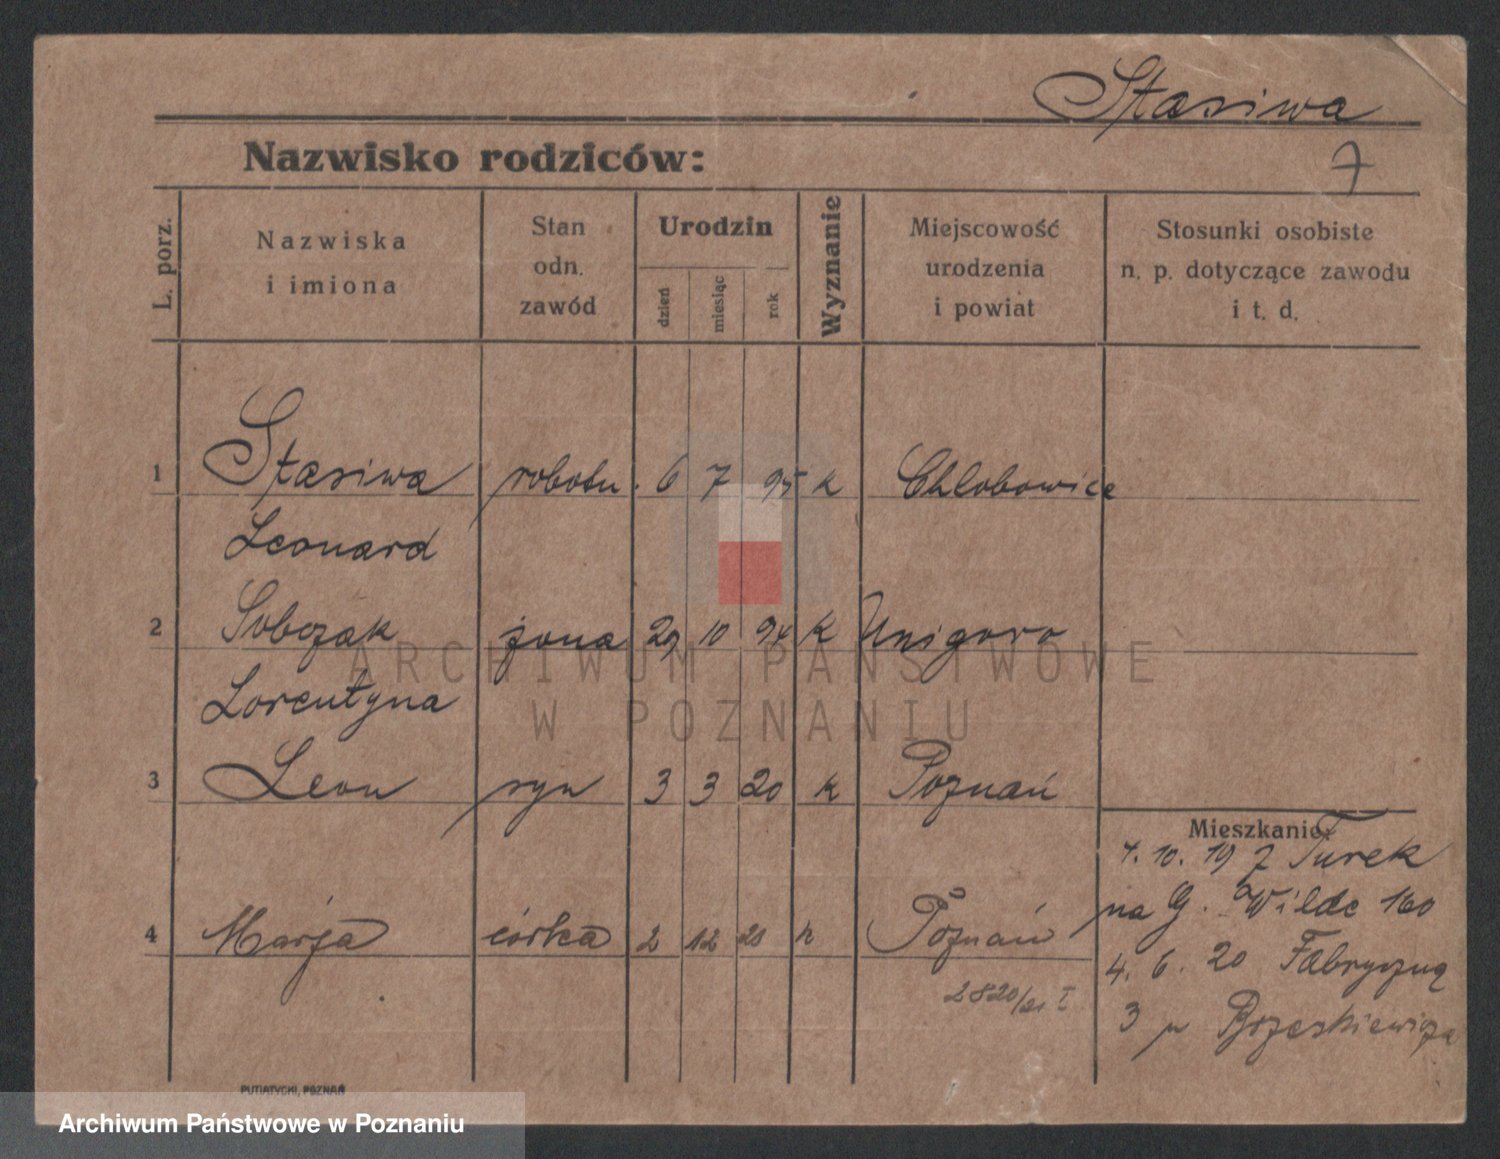 Stasiwa
7
Nazwisko rodziców:
L. porz.
Nazwiska
i imiona
Stan
odn.
zawód
Urodzin
dzień
miesiąc
rok
Wyznanie
Miejscowość
urodzenia
i powiat
Stosunki osobiste
n. p. dotyczące zawodu
i t. d.
1 Stasiwa robotn. 6 7 95 k Chlobowice
Leonard
2 Sobczak żona 29 10 94 k Unigoro
Lorentyna
3 Leon syn 3 3 20 k Poznań
Mieszkanie:
4. 10. 19 z Turek
na G. Wilde 160
4 Marja córka 2 12 21 k Poznań
4. 6. 20 Fabryczną
2820/21 I
3 u Brzeskiewicza
PUTIATYCKI, POZNAŃ
ARCHIWUM PAŃSTWOWE
W POZNANIU
Archiwum Państwowe w Poznaniu